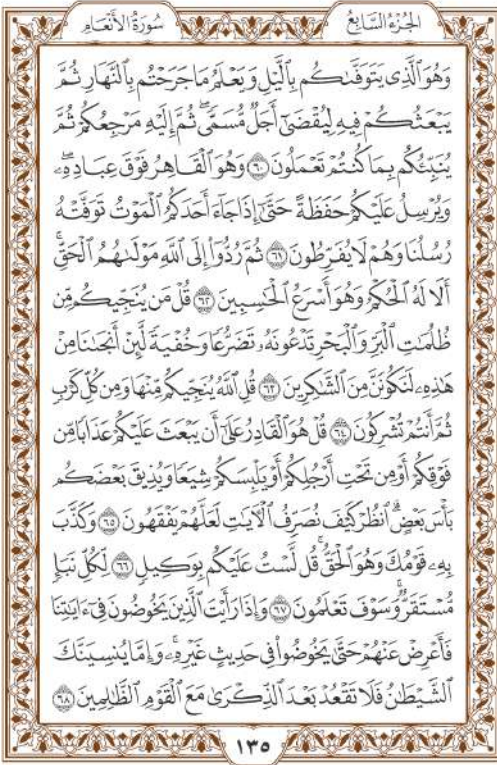 الجُزْءُ السَّابِعُ
سُورَةُ الأَنْعَامِ
وَهُوَ ٱلَّذِى يَتَوَفَّىٰكُم بِٱلَّيْلِ وَيَعْلَمُ مَا جَرَحْتُم بِٱلنَّهَارِ ثُمَّ
يَبْعَثُكُمْ فِيهِ لِيُقْضَىٰٓ أَجَلٌ مُّسَمًّى ۖ ثُمَّ إِلَيْهِ مَرْجِعُكُمْ ثُمَّ
يُنَبِّئُكُم بِمَا كُنتُمْ تَعْمَلُونَ ٦٠ وَهُوَ ٱلْقَاهِرُ فَوْقَ عِبَادِهِۦ ۖ
وَيُرْسِلُ عَلَيْكُمْ حَفَظَةً حَتَّىٰٓ إِذَا جَآءَ أَحَدَكُمُ ٱلْمَوْتُ تَوَفَّتْهُ
رُسُلُنَا وَهُمْ لَا يُفَرِّطُونَ ٦١ ثُمَّ رُدُّوٓا۟ إِلَى ٱللَّهِ مَوْلَىٰهُمُ ٱلْحَقِّ ۚ
أَلَا لَهُ ٱلْحُكْمُ وَهُوَ أَسْرَعُ ٱلْحَٰسِبِينَ ٦٢ قُلْ مَن يُنَجِّيكُم مِّن
ظُلُمَٰتِ ٱلْبَرِّ وَٱلْبَحْرِ تَدْعُونَهُۥ تَضَرُّعًا وَخُفْيَةً لَّئِنْ أَنجَىٰنَا مِنْ
هَٰذِهِۦ لَنَكُونَنَّ مِنَ ٱلشَّٰكِرِينَ ٦٣ قُلِ ٱللَّهُ يُنَجِّيكُم مِّنْهَا وَمِن كُلِّ كَرْبٍ
ثُمَّ أَنتُمْ تُشْرِكُونَ ٦٤ قُلْ هُوَ ٱلْقَادِرُ عَلَىٰٓ أَن يَبْعَثَ عَلَيْكُمْ عَذَابًا مِّن
فَوْقِكُمْ أَوْ مِن تَحْتِ أَرْجُلِكُمْ أَوْ يَلْبِسَكُمْ شِيَعًا وَيُذِيقَ بَعْضَكُم
بَأْسَ بَعْضٍ ۗ ٱنظُرْ كَيْفَ نُصَرِّفُ ٱلْـَٔايَٰتِ لَعَلَّهُمْ يَفْقَهُونَ ٦٥ وَكَذَّبَ
بِهِۦ قَوْمُكَ وَهُوَ ٱلْحَقُّ ۚ قُل لَّسْتُ عَلَيْكُم بِوَكِيلٍ ٦٦ لِّكُلِّ نَبَإٍ
مُّسْتَقَرٌّ ۚ وَسَوْفَ تَعْلَمُونَ ٦٧ وَإِذَا رَأَيْتَ ٱلَّذِينَ يَخُوضُونَ فِىٓ ءَايَٰتِنَا
فَأَعْرِضْ عَنْهُمْ حَتَّىٰ يَخُوضُوا۟ فِى حَدِيثٍ غَيْرِهِۦ ۚ وَإِمَّا يُنسِيَنَّكَ
ٱلشَّيْطَٰنُ فَلَا تَقْعُدْ بَعْدَ ٱلذِّكْرَىٰ مَعَ ٱلْقَوْمِ ٱلظَّٰلِمِينَ ٦٨
١٣٥